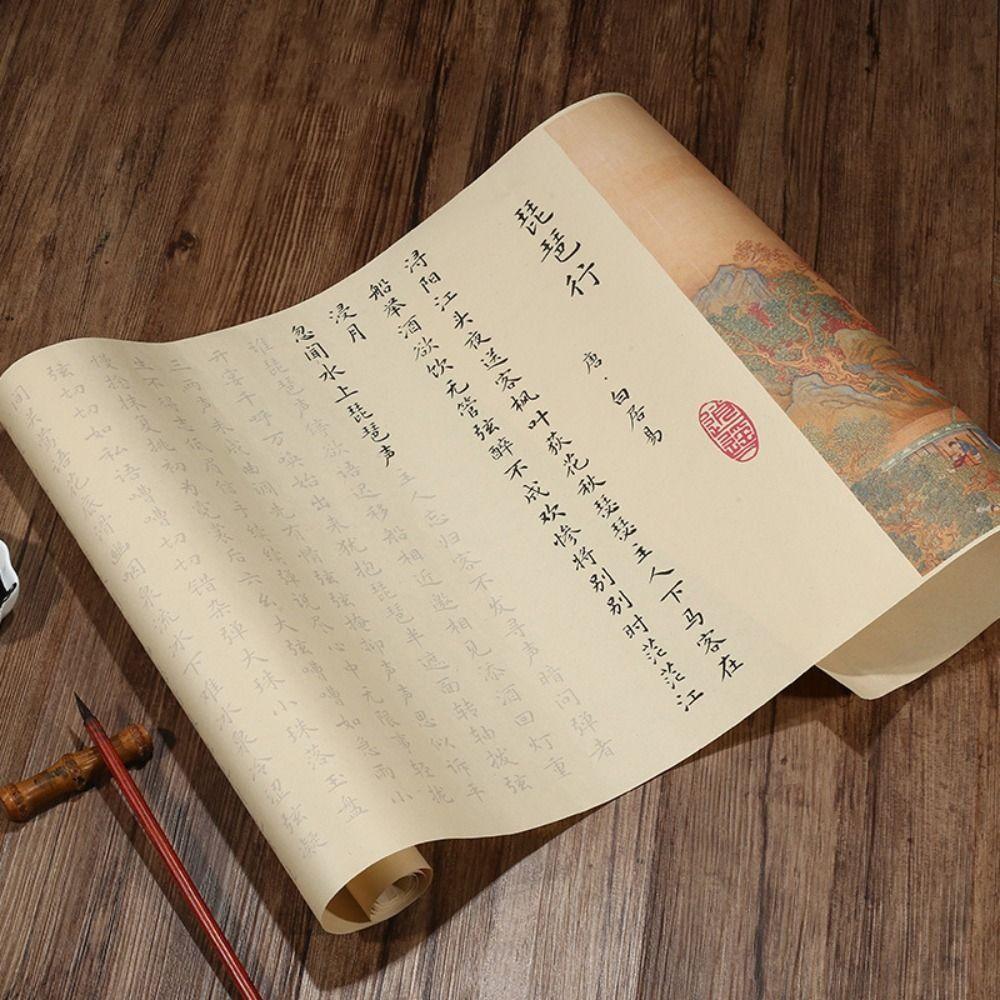 琵琶行
唐·白居易
浔阳江头夜送客枫叶荻花秋瑟瑟主人下马客在
船举酒欲饮无管弦醉不成欢惨将别别时茫茫江
浸月
忽闻水上琵琶声主人忘归客不发寻声暗问弹者
谁琵琶声停欲语迟移船相近邀相见添酒回灯重
开宴千呼万唤始出来犹抱琵琶半遮面转轴拨弦
三两声未成曲调先有情弦弦掩抑声声思似诉平
生不得志低眉信手续续弹说尽心中无限事轻拢
慢捻抹复挑初为霓裳后六幺大弦嘈嘈如急雨小
弦切切如私语嘈嘈切切错杂弹大珠小珠落玉盘
间关莺语花底滑幽咽泉流水下难冰泉冷涩弦凝